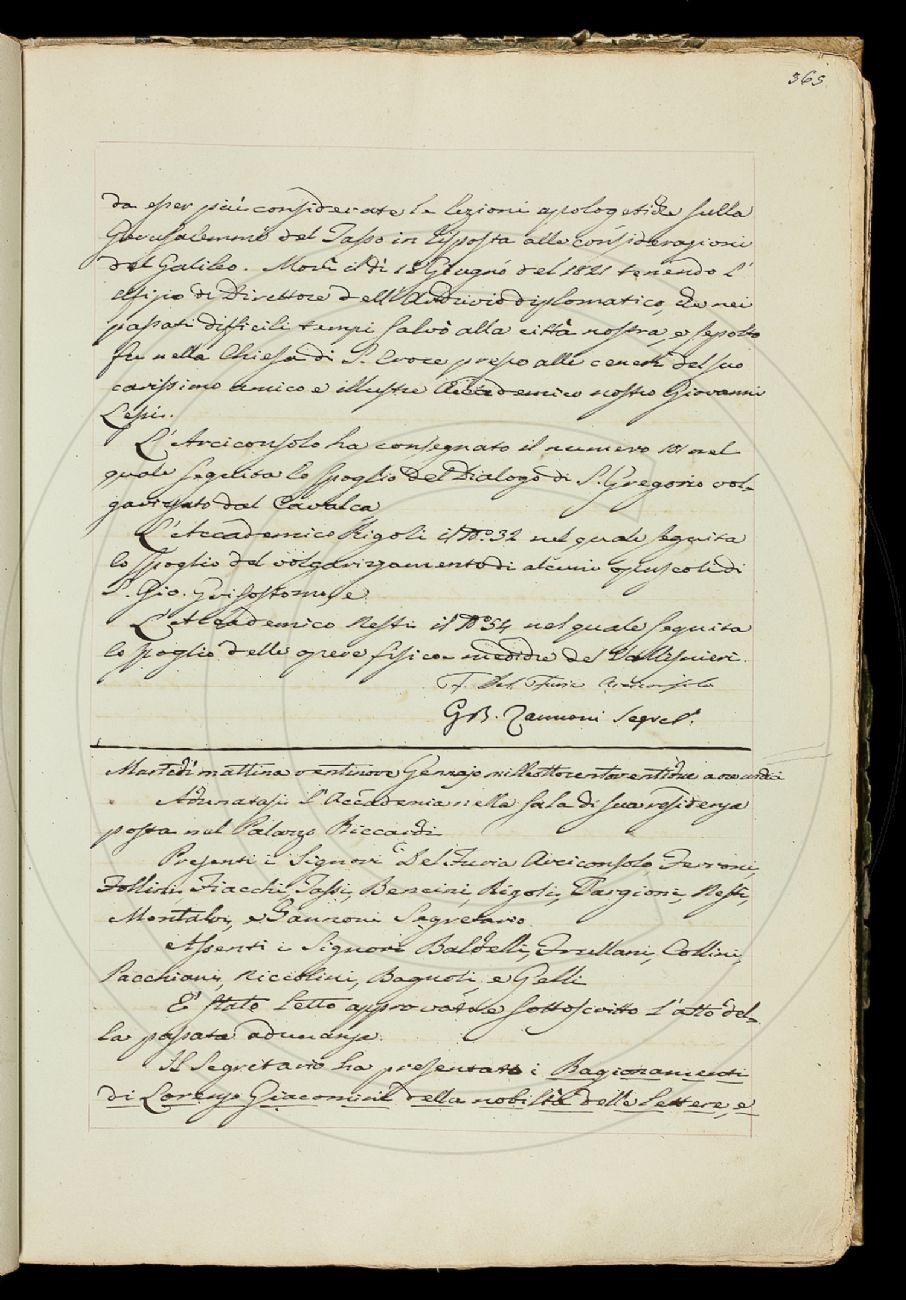 365
da esser più considerate le lezioni apologetiche sulla
Gerusalemme del Tasso in risposta alle considerazioni
del Galileo. Morì il dì 12 Giugno del 1821 tenendo l'
ufizio di Direttore dell'Archivio diplomatico, che nei
passati difficili tempi salvò alla città nostra, e sepolto
fu nella Chiesa di S. Croce presso alle ceneri del suo
carissimo amico e illustre Accademico nostro Giovanni
Lessi.
L'Arciconsolo ha consegnato il numero 101 nel
quale seguita lo spoglio del Dialogo di S. Gregorio vol-
garizzato dal Cavalca
L'Accademico Rigoli il N.º 32 nel quale seguita
lo spoglio del volgarizzamento di alcuni opuscoli di
S. Gio. Grisostomo, e
L'Accademico Nesti il N.º 54 nel quale seguita
lo spoglio delle opere fisico-mediche del Vallisnieri.
F. Del Furia Arciconsolo
GB. Zannoni Segret.º
Martedì mattina ventinove Gennajo milleottocentoventidue a ore undici
Adunatasi l'Accademia nella sala di sua residenza
posta nel Palazzo Riccardi
Presenti i Signori Del Furia Arciconsolo, Ferroni,
Follini, Fiacchi, Tassi, Bencini, Rigoli, Targioni, Nesti,
Montalvi, e Zannoni Segretario
Assenti i Signori Baldelli, Frullani, Collini,
Pacchiani, Niccolini, Bagnoli e Gelli
E' stato letto approvato e sottoscritto l'atto del-
la passata adunanza.
Il Segretario ha presentato i Ragionamenti
di Lorenzo Giacomini della nobiltà delle lettere, e